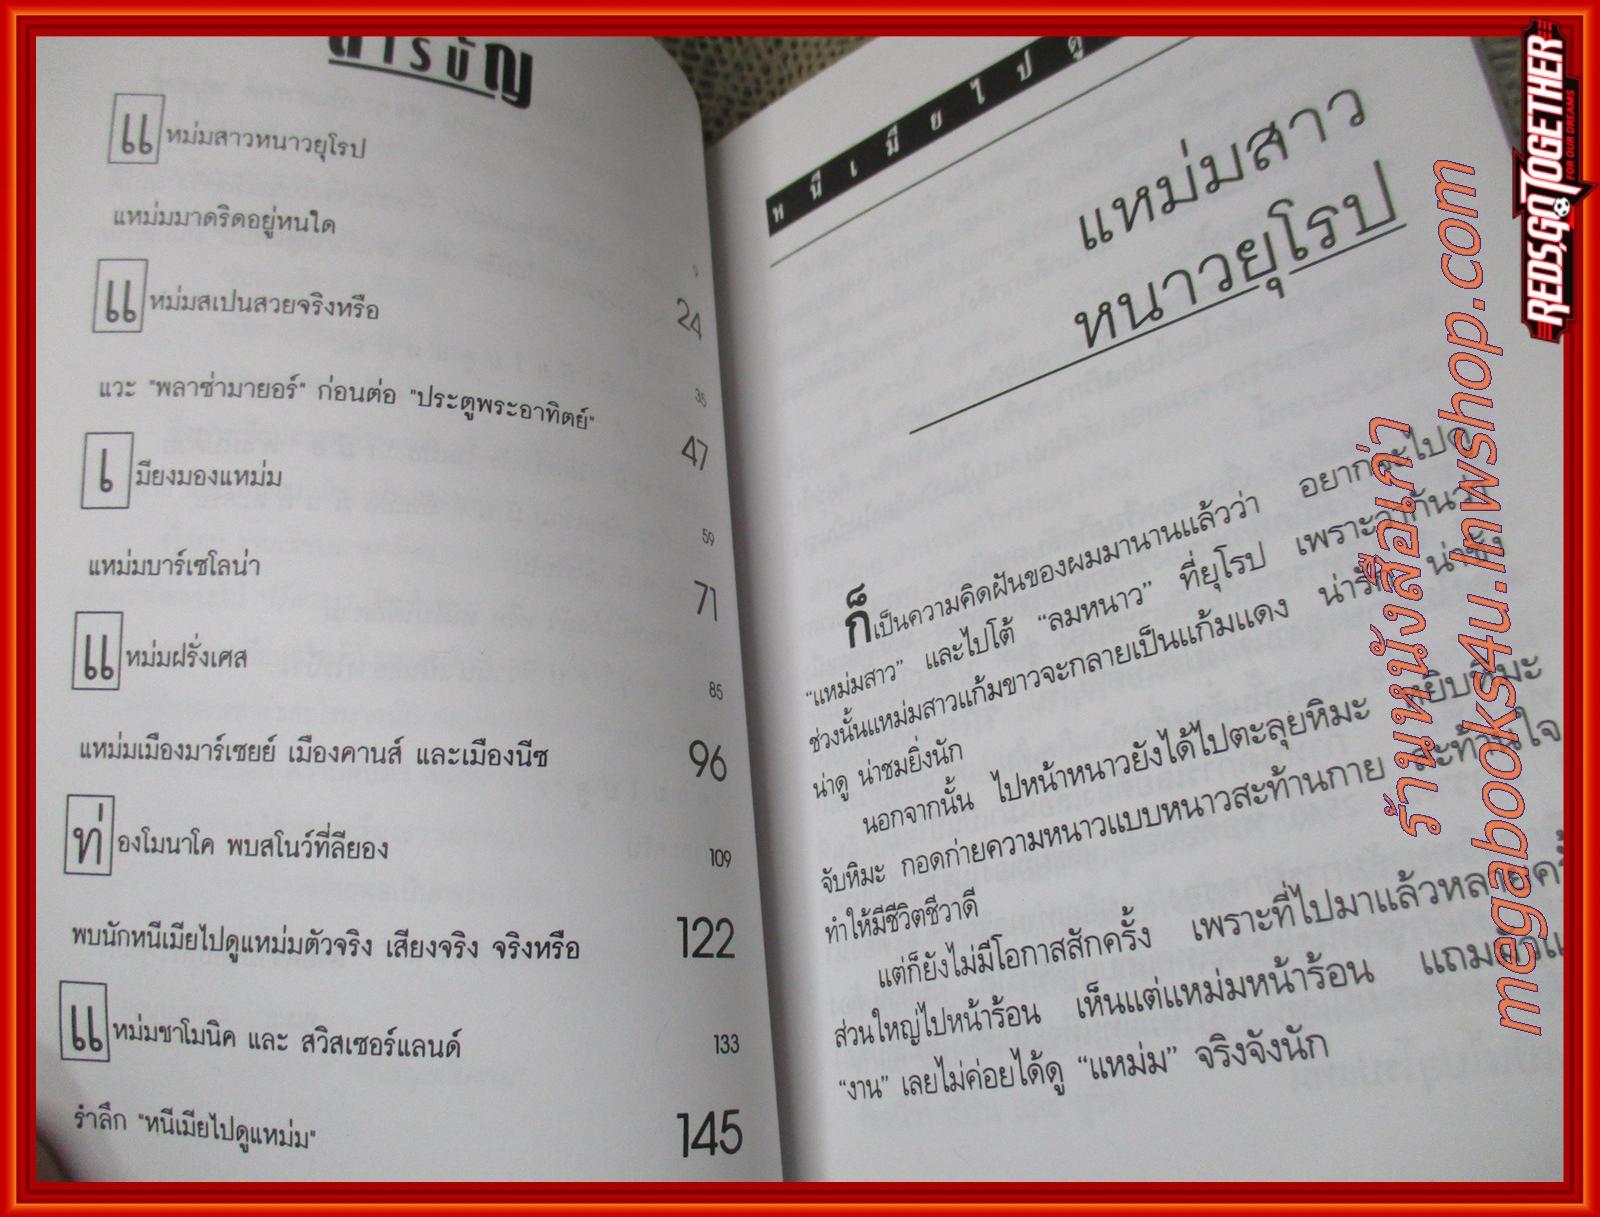 สารบัญ
แหม่มสาวหนาวยุโรป
9
แหม่มมาดริดอยู่หนใด
24
แหม่มสเปนสวยจริงหรือ
35
แวะ "พลาซ่ามายอร์" ก่อนต่อ "ประตูพระอาทิตย์"
47
เมียงมองแหม่ม
59
แหม่มบาร์เซโลน่า
71
แหม่มฝรั่งเศส
85
แหม่มเมืองมาร์เซยย์ เมืองคานส์ และเมืองนีซ
96
ท่องโมนาโค พบสโนว์ที่ลียอง
109
พบนักหนีเมียไปดูแหม่มตัวจริง เสียงจริง จริงหรือ
122
แหม่มชาโมนิค และ สวิสเซอร์แลนด์
133
รำลึก "หนีเมียไปดูแหม่ม"
145
หนีเมียไปดู
แหม่มสาว
หนาวยุโรป
ก็เป็นความคิดฝันของผมมานานแล้วว่า อยากจะไปดู
"แหม่มสาว" และไปโต้ "ลมหนาว" ที่ยุโรป เพราะว่ากันว่า
ช่วงนั้นแหม่มสาวแก้มขาวจะกลายเป็นแก้มแดง น่ารัก น่าชัง
น่าดู น่าชมยิ่งนัก
นอกจากนั้น ไปหน้าหนาวยังได้ไปตะลุยหิมะ หยิบหิมะ
จับหิมะ กอดก่ายความหนาวแบบหนาวสะท้านกาย สะท้านใจ
ทำให้มีชีวิตชีวาดี
แต่ก็ยังไม่มีโอกาสสักครั้ง เพราะที่ไปมาแล้วหลายครั้ง
ส่วนใหญ่ไปหน้าร้อน เห็นแต่แหม่มหน้าร้อน แถมมัวแ
"งาน" เลยไม่ค่อยได้ดู "แหม่ม" จริงจังนัก
ร้านหนังสือเก่า
megabooks4u.lnwshop.com
REDSGOTOGETHER
FOR OUR DREAMS